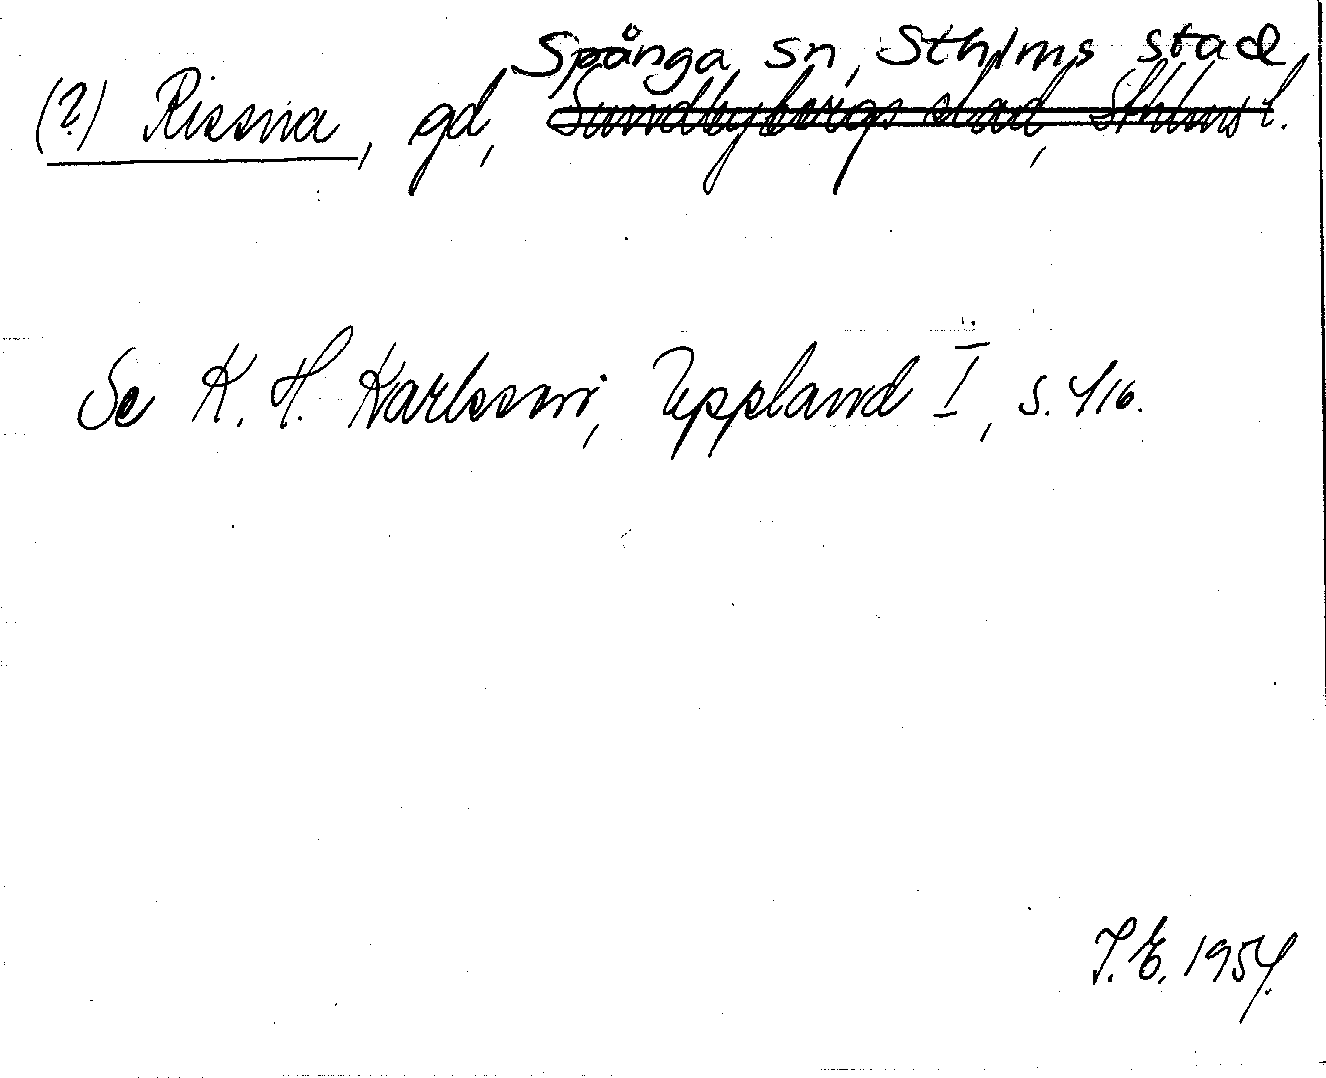 Spånga sn, Sthlms stad
(?) Rissna, gd, Sundbybergs stad, Sthlms l.
Se K. H. Karlsson, Uppland I, s. 416.
T. E. 1954.